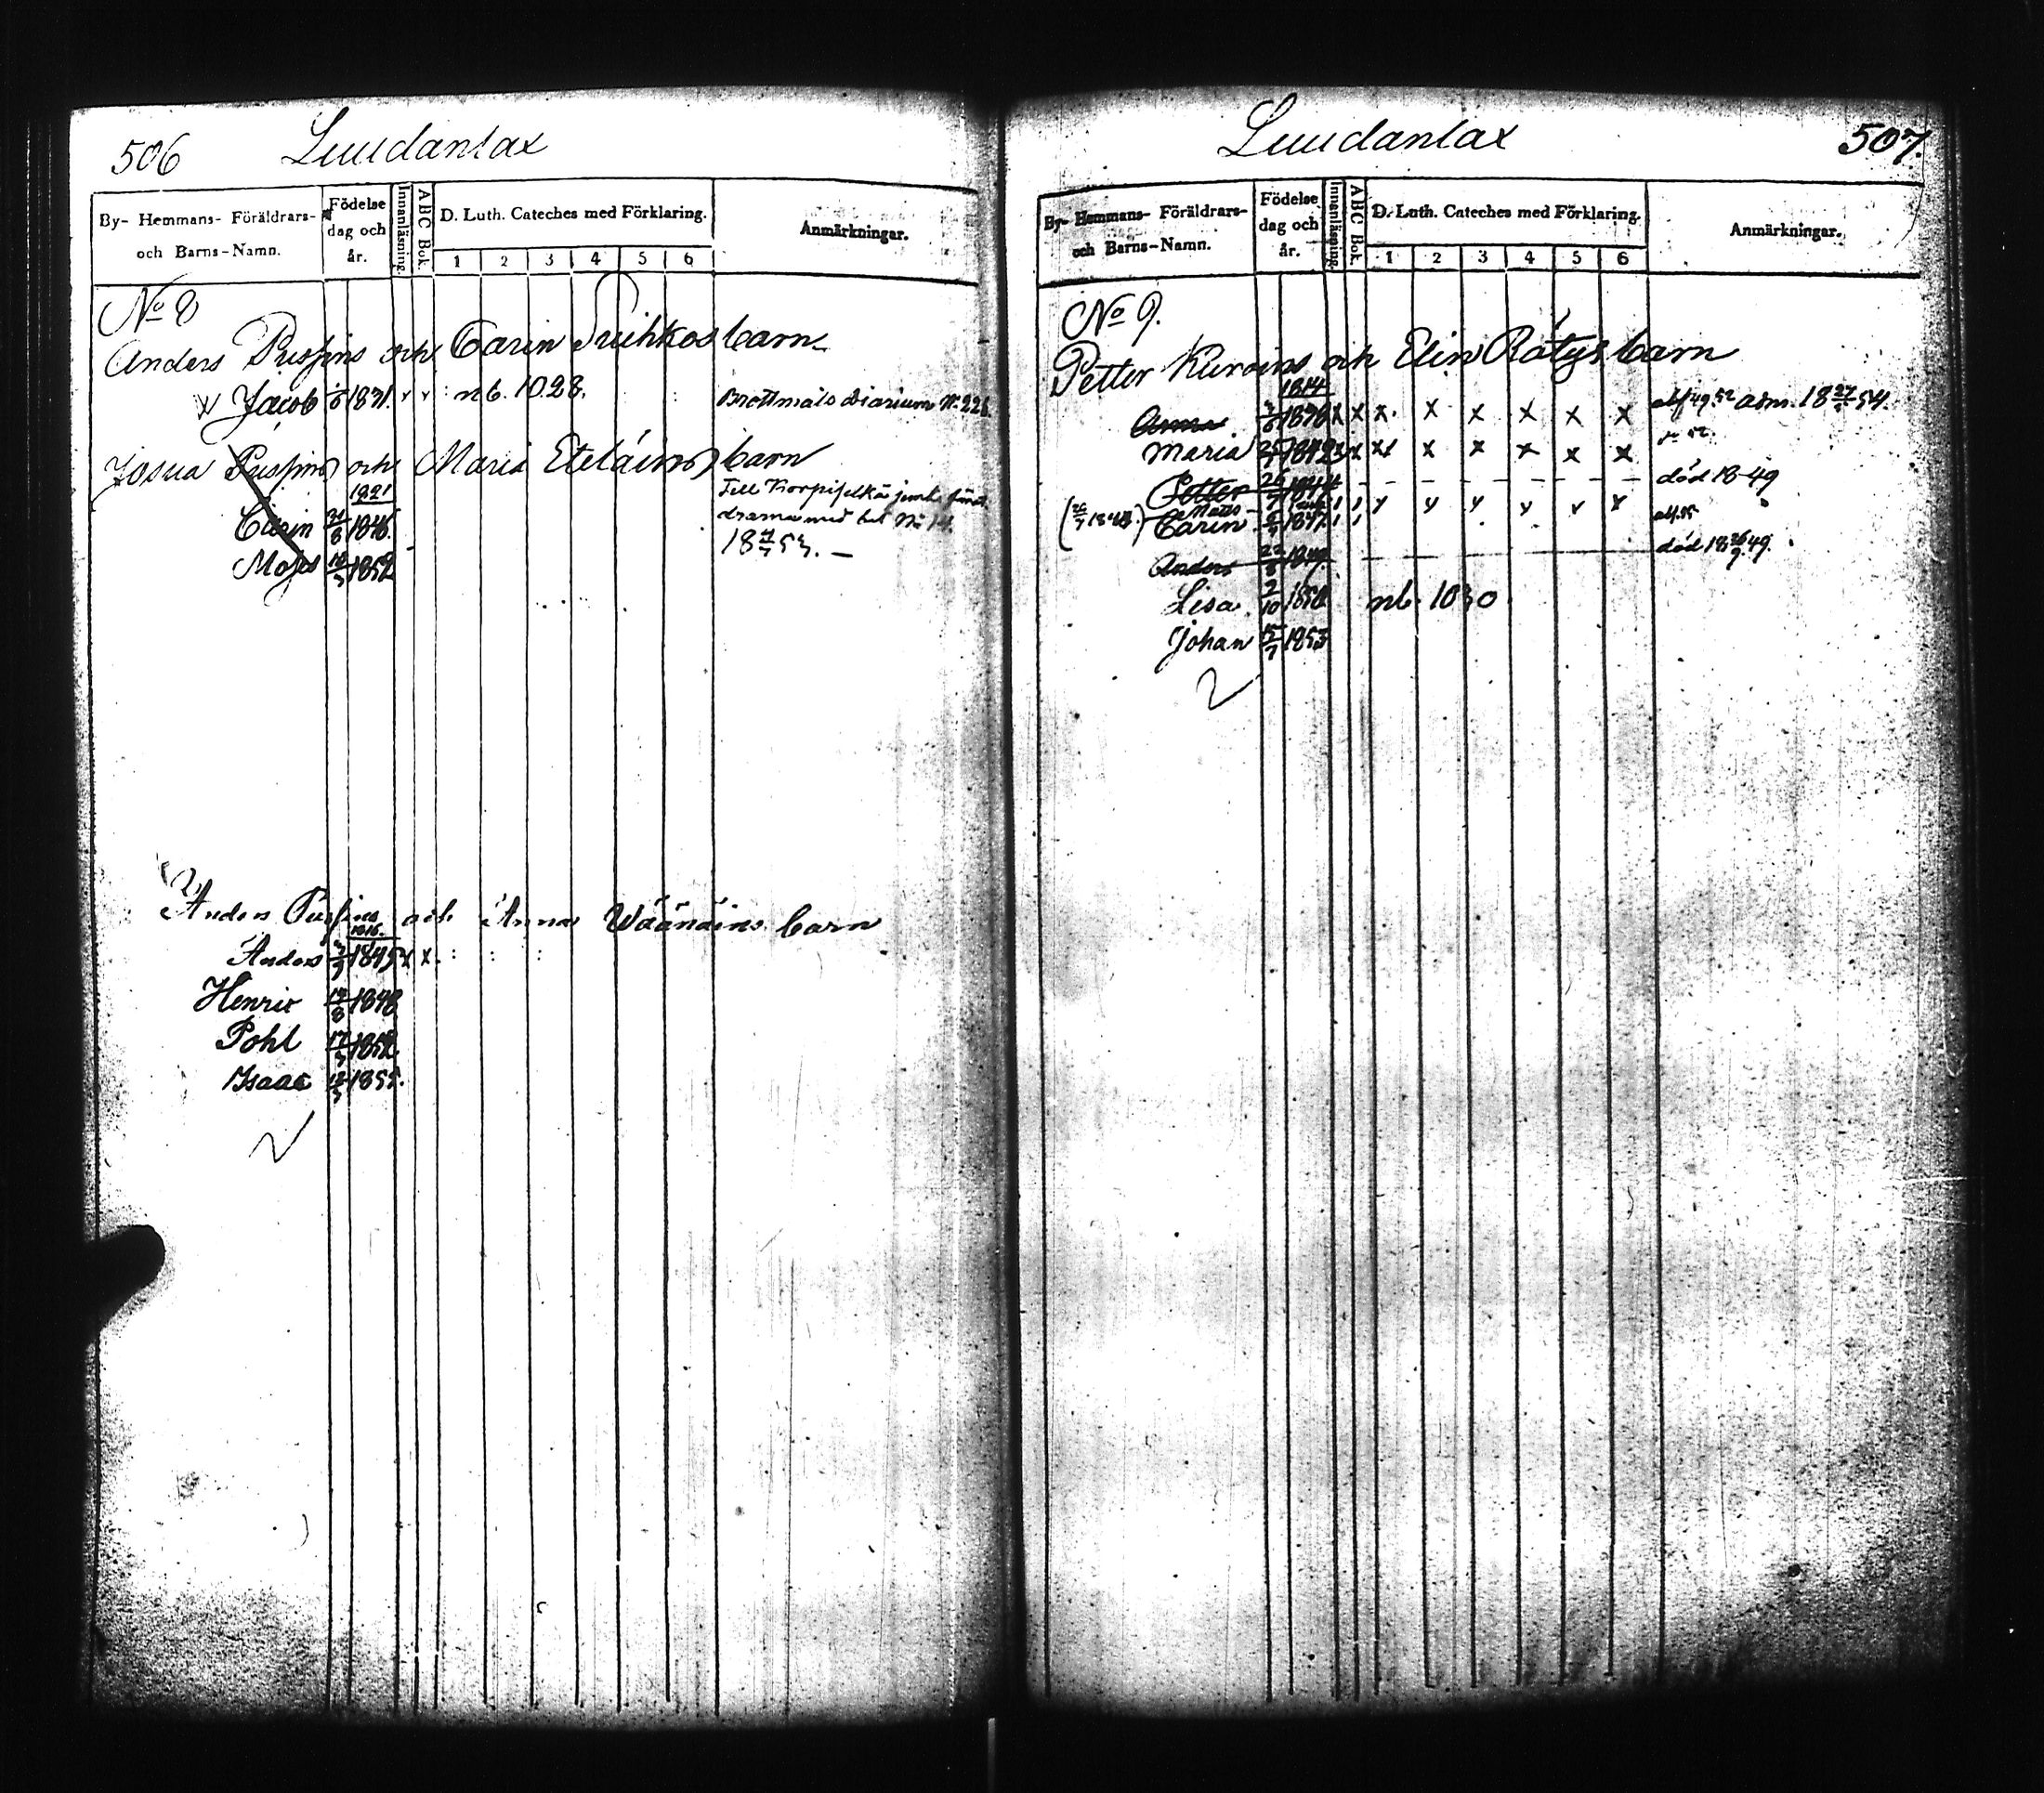 506 Luudanlax
By- Hemmans- Föräldrars- och Barns-Namn. Födelse dag och år. Innanläsning. ABC Bok. D. Luth. Cateches med Förklaring. 1 2 3 4 5 6 Anmärkningar.
No 8
Anders Pussins och Carin Suihkos barn
Jacob 1831. v v nb. 1028. Brottmåls Diarium No 226
Josua Pussins och Maria Eteläins barn
1821
Carin 21/8 1846. Till Korpiselkä jemte föräl-
drarna med bet No 14.
Moses 10/3 1852 53. —
Anders Pussins och Anna Wäänäins barn
1816.
Anders 1845 x x
Henric 1848
Pohl 17/3 1852
Isaac 1855.
507.
Luudanlax
By- Hemmans- Föräldrars- och Barns-Namn. Födelse dag och år. Innanläsning. ABC Bok. D. Luth. Cateches med Förklaring. 1 2 3 4 5 6 Anmärkningar.
No 9.
Petter Kuroins och Elin Rätys barn
1814
Anna x x x x x x x x adm. 18 54.
Maria 1842 x x x x x x x x
Petter 26 1844 – – – – – – död 1849
Matts
Carin 1847 y y y y v y
Anders 22/8 1849. död 18 26/9 49.
Lisa 9/10 1850 nb. 1030
Johan 15/7 1853